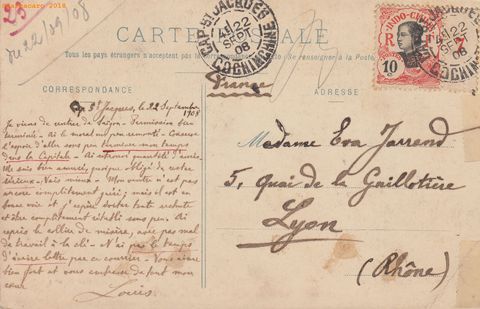 delcampe 2018
23
du 22/09/08
CARTE POSTALE
Tous les pays étrangers n'acceptent pas la correspondance au recto. Se renseigner à la Poste.
CAP ST JACQUES
22
SEPT
08
COCHINCHINE
INDO-CHINE
R F
10
CAP ST JACQUES
22
SEPT
08
COCHINCHINE
France
CORRESPONDANCE
ADRESSE
Cap St Jacques, le 22 Septembre
1908
Je viens de rentrer de Saïgon. Permission bien
terminée. Ai le moral un peu remonté.
J'espère d'ici sous peu terminer mon temps
dans la Capitale. Ai quantité
Me suis bien amusé, quoique obligé de rester
sérieux. Vais mieux. Mon ventre n'est pas
encore complètement guéri; mais il est en
bonne voie et j'espère
et être complètement rétabli sous peu. Ai
repris le collier de misère, avec pas mal
de travail à la clé. N'ai pas le temps
d'écrire lettre par ce courrier. Vous aime
bien fort et vous embrasse de tout mon
cœur.
Louis
Madame Eva Jarrend
5, Quai de la Guillotière
Lyon
(Rhône)